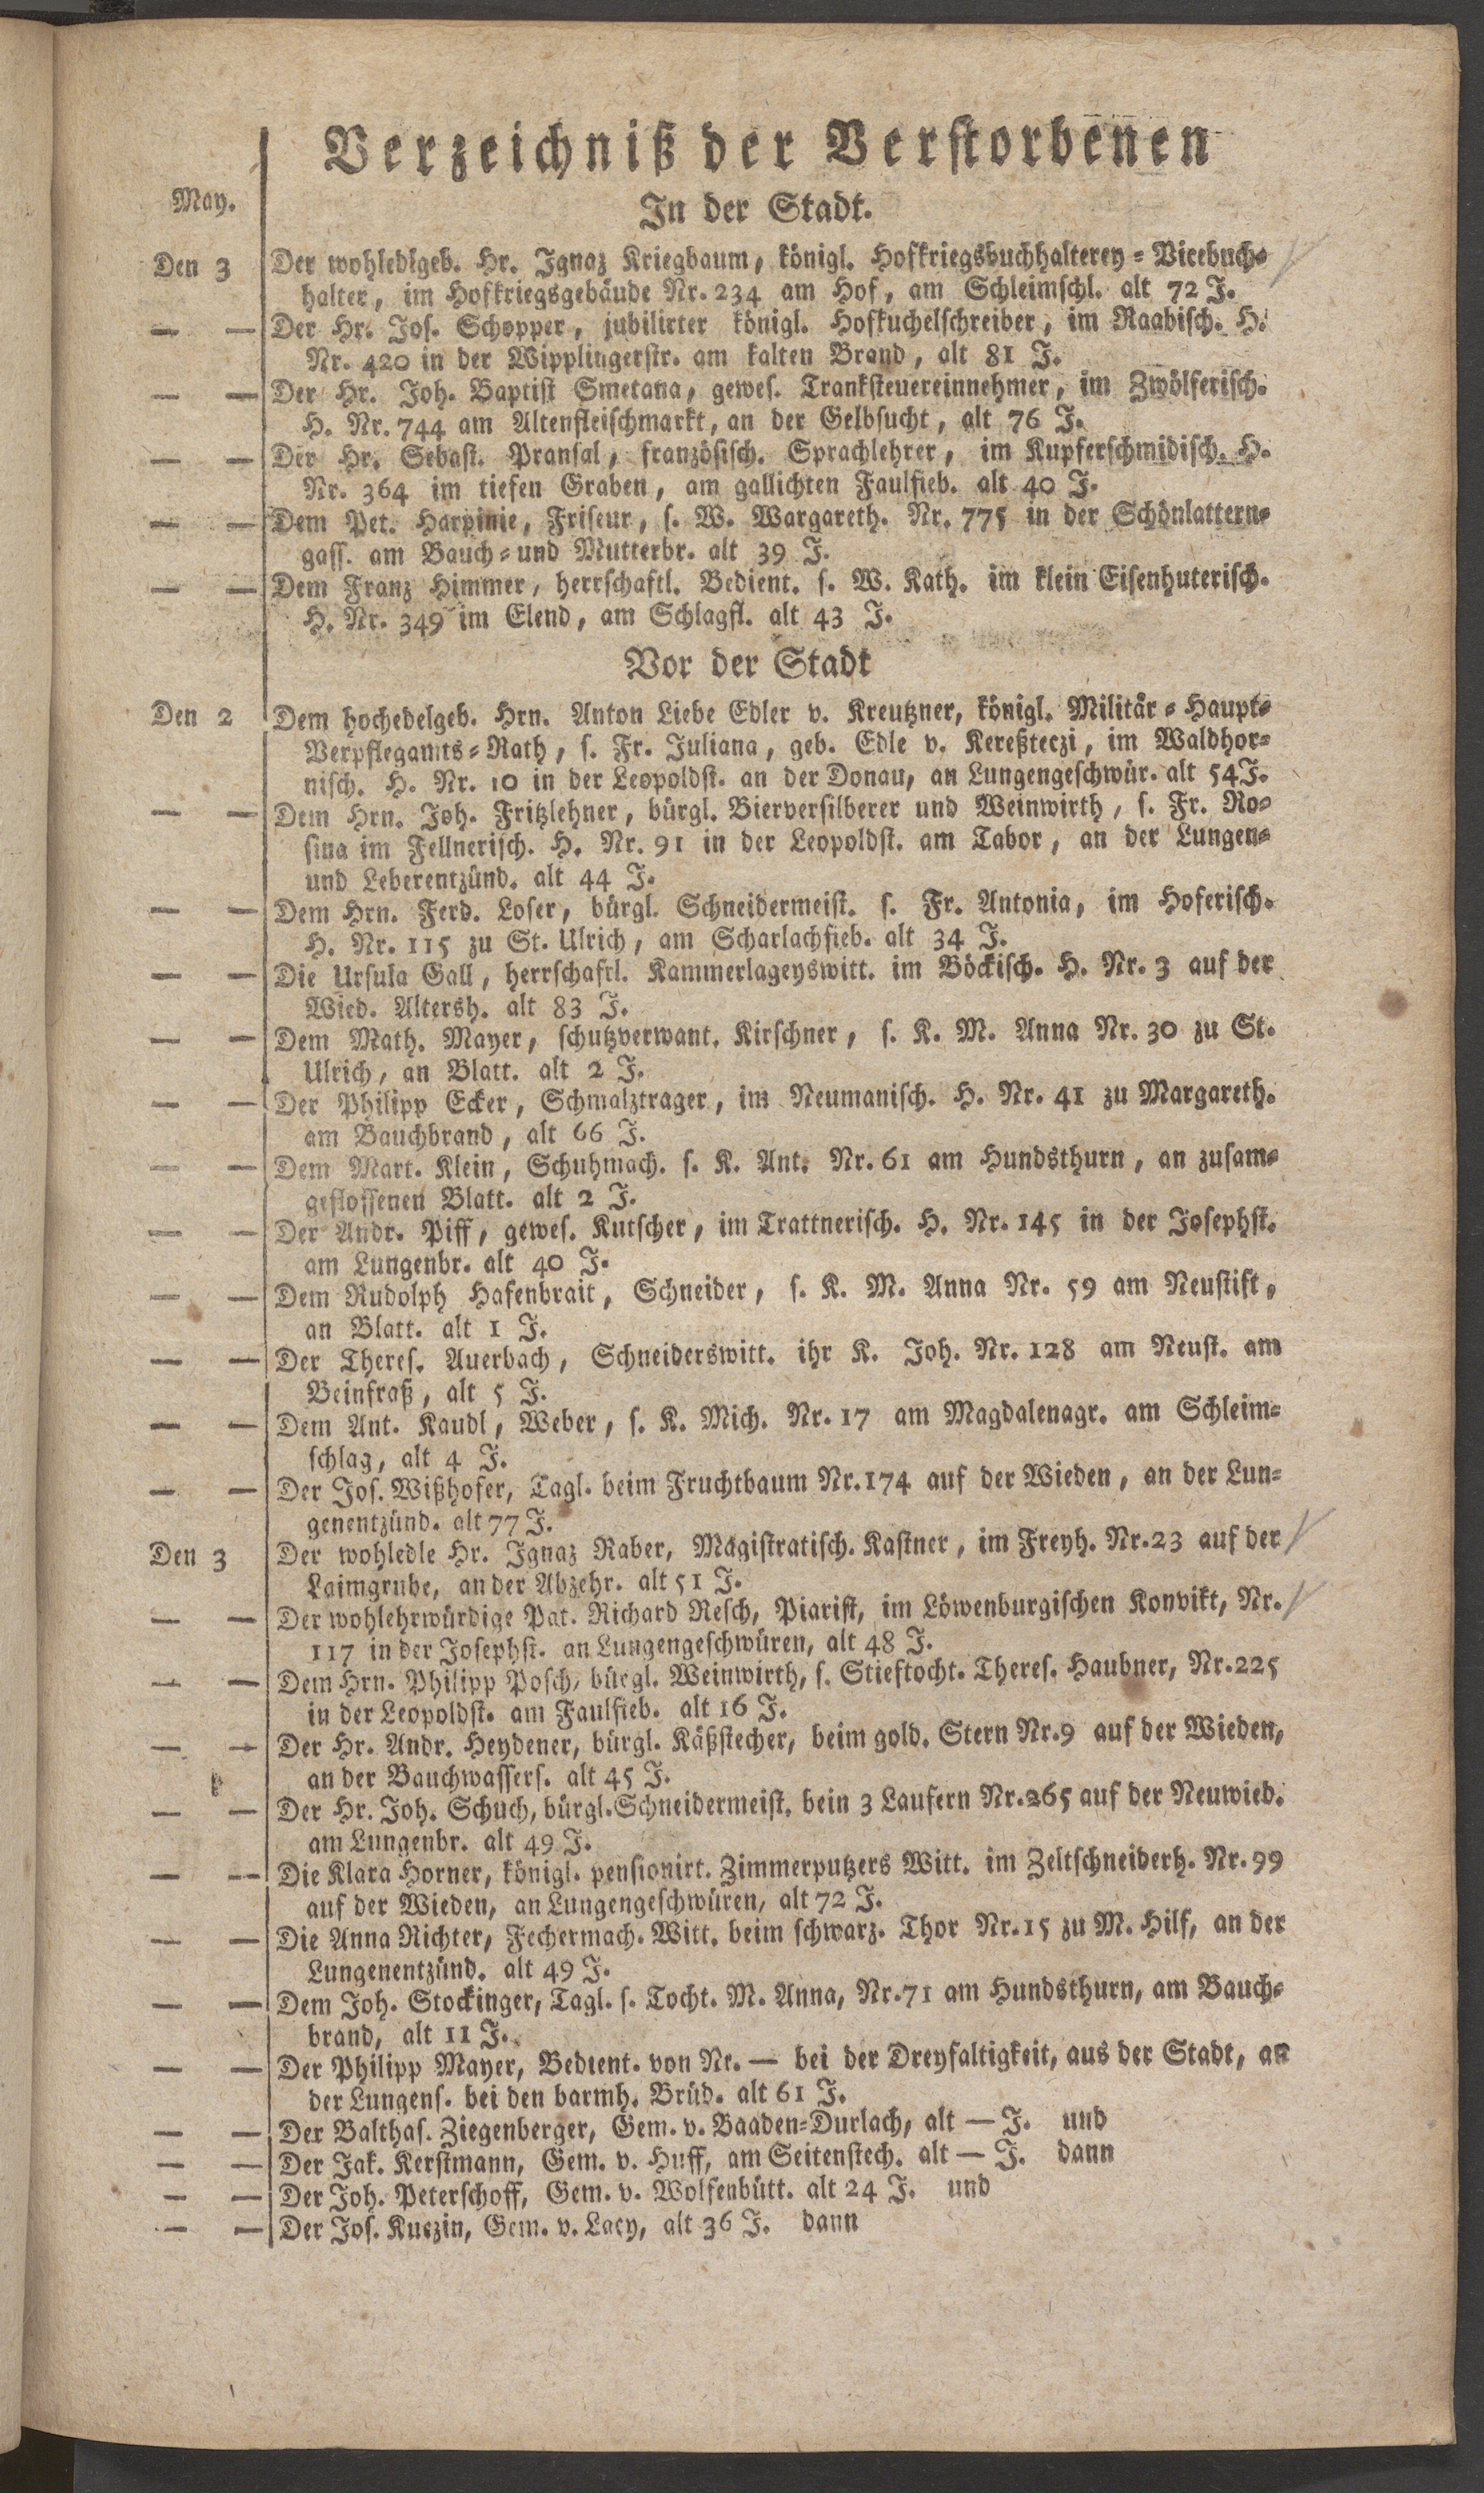 Verzeichniß der Verstorbenen
May.
In der Stadt.
Den 3 Der wohledlgeb. Hr. Ignaz Kriegbaum, königl. Hofkriegsbuchhalterey=Vicebuch=
halter, im Hofkriegsgebäude Nr. 234 am Hof, am Schleimschl. alt 72 J.
— — Der Hr. Jos. Schopper, jubilirter königl. Hofkuchelschreiber, im Raabisch. H.
Nr. 420 in der Wipplingerstr. am kalten Brand, alt 81 J.
— — Der Hr. Joh. Baptist Smetana, gewes. Tranksteuereinnehmer, im Zwölferisch.
H. Nr. 744 am Altenfleischmarkt, an der Gelbsucht, alt 76 J.
— — Der Hr. Sebast. Pransal, französisch. Sprachlehrer, im Kupferschmidisch. H.
Nr. 364 im tiefen Graben, am gallichten Faulfieb. alt 40 J.
— — Dem Pet. Harpinie, Friseur, s. W. Wargareth. Nr. 775 in der Schönlattern=
gass. am Bauch=und Mutterbr. alt 39 J.
— — Dem Franz Himmer, herrschaftl. Bedient. s. W. Kath. im klein Eisenhuterisch.
H. Nr. 349 im Elend, am Schlagfl. alt 43 J.
Vor der Stadt
Den 2 Dem hochedelgeb. Hrn. Anton Liebe Edler v. Kreutzner, königl. Militär=Haupt=
Verpflegamts=Rath, s. Fr. Juliana, geb. Edle v. Kereßteczi, im Waldhor=
nisch. H. Nr. 10 in der Leopoldst. an der Donau, an Lungengeschwür. alt 54 J.
— — Dem Hrn. Joh. Fritzlehner, bürgl. Bierversilberer und Weinwirth, s. Fr. Ro=
sina im Fellnerisch. H. Nr. 91 in der Leopoldst. am Tabor, an der Lungen=
und Leberentzünd. alt 44 J.
— — Dem Hrn. Ferd. Loser, bürgl. Schneidermeist. s. Fr. Antonia, im Hoferisch.
H. Nr. 115 zu St. Ulrich, am Scharlachfieb. alt 34 J.
— — Die Ursula Gall, herrschaftl. Kammerlageyswitt. im Böckisch. H. Nr. 3 auf der
Wied. Altersh. alt 83 J.
— — Dem Math. Mayer, schutzverwant. Kirschner, s. K. M. Anna Nr. 30 zu St.
Ulrich, an Blatt. alt 2 J.
— — Der Philipp Ecker, Schmalztrager, im Neumanisch. H. Nr. 41 zu Margareth.
am Bauchbrand, alt 66 J.
— — Dem Mart. Klein, Schuhmach. s. K. Ant. Nr. 61 am Hundsthurn, an zusam=
geflossenen Blatt. alt 2 J.
— — Der Andr. Piff, gewes. Kutscher, im Trattnerisch. H. Nr. 145 in der Josephst.
am Lungenbr. alt 40 J.
— — Dem Rudolph Hafenbrait, Schneider, s. K. M. Anna Nr. 59 am Neustift,
an Blatt. alt 1 J.
— — Der Theres. Auerbach, Schneiderswitt. ihr K. Joh. Nr. 128 am Neust. am
Beinfraß, alt 5 J.
— — Dem Ant. Kaudl, Weber, s. K. Mich. Nr. 17 am Magdalenagr. am Schleim=
schlag, alt 4 J.
— — Der Jos. Wißhofer, Tagl. beim Fruchtbaum Nr. 174 auf der Wieden, an der Lun=
genentzünd. alt 77 J.
Den 3 Der wohledle Hr. Ignaz Raber, Magistratisch. Kastner, im Freyh. Nr. 23 auf der
Laimgrube, an der Abzehr. alt 51 J.
— — Der wohlehrwürdige Pat. Richard Resch, Piarist, im Löwenburgischen Konvikt, Nr.
117 in der Josephst. an Lungengeschwüren, alt 48 J.
— — Dem Hrn. Philipp Posch, bürgl. Weinwirth, s. Stieftocht. Theres. Haubner, Nr. 225
in der Leopoldst. am Faulfieb. alt 16 J.
— — Der Hr. Andr. Heydener, bürgl. Käßstecher, beim gold. Stern Nr. 9 auf der Wieden,
an der Bauchwassers. alt 45 J.
— — Der Hr. Joh. Schuch, bürgl. Schneidermeist. bein 3 Laufern Nr. 265 auf der Neuwied.
am Lungenbr. alt 49 J.
— — Die Klara Horner, königl. pensionirt. Zimmerputzers Witt. im Zeltschneiderh. Nr. 99
auf der Wieden, an Lungengeschwüren, alt 72 J.
— — Die Anna Richter, Fechermach. Witt. beim schwarz. Thor Nr. 15 zu M. Hilf, an der
Lungenentzünd. alt 49 J.
— — Dem Joh. Stockinger, Tagl. s. Tocht. M. Anna, Nr. 71 am Hundsthurn, am Bauch=
brand, alt 11 J.
— — Der Philipp Mayer, Bedient. von Nr. — bei der Dreyfaltigkeit, aus der Stadt, an
der Lungens. bei den barmh. Brüd. alt 61 J.
— — Der Balthas. Ziegenberger, Gem. v. Baaden=Durlach, alt — J. und
— — Der Jak. Kerstmann, Gem. v. Huff, am Seitenstech. alt — J. dann
— — Der Joh. Peterschoff, Gem. v. Wolfenbütt. alt 24 J. und
— — Der Jos. Kuczin, Gem. v. Lacy, alt 36 J. dann